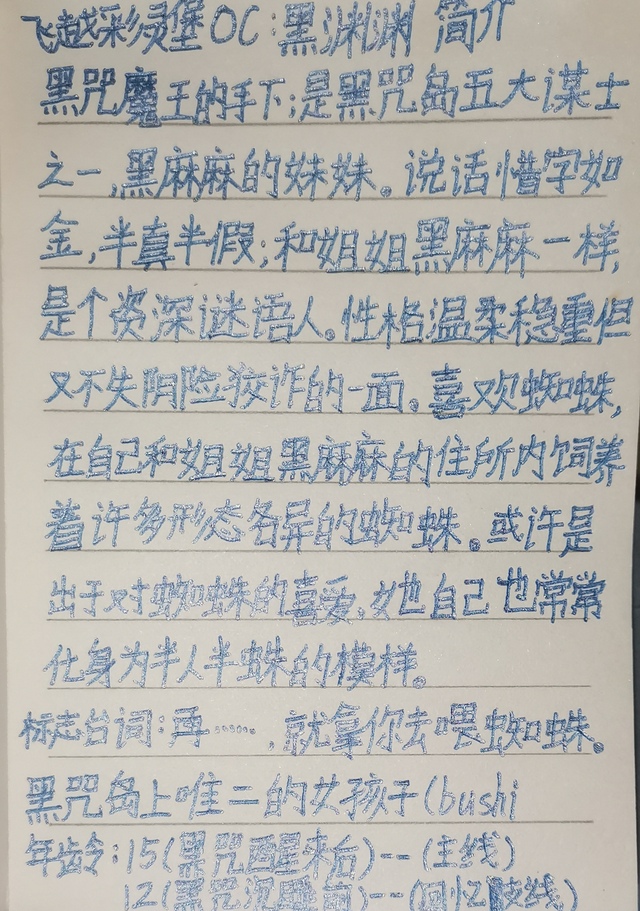 飞越彩灵堡OC:黑渊渊 简介
黑咒魔王的手下;是黑咒岛五大谋士
之一,黑麻麻的妹妹。说话惜字如
金,半真半假;和姐姐黑麻麻一样,
是个资深谜语人。性格温柔稳重但
又不失阴险狡诈的一面。喜欢蜘蛛,
在自己和姐姐黑麻麻的住所内饲养
着许多形态各异的蜘蛛。或许是
出于对蜘蛛的喜爱,她自己也常常
化身为半人半蛛的模样。
标志台词:再……,就拿你去喂蜘蛛。
黑咒岛上唯二的女孩子(bushi
年龄:15(黑咒醒来后)--(主线)
12(黑咒沉睡前)--(回忆支线)